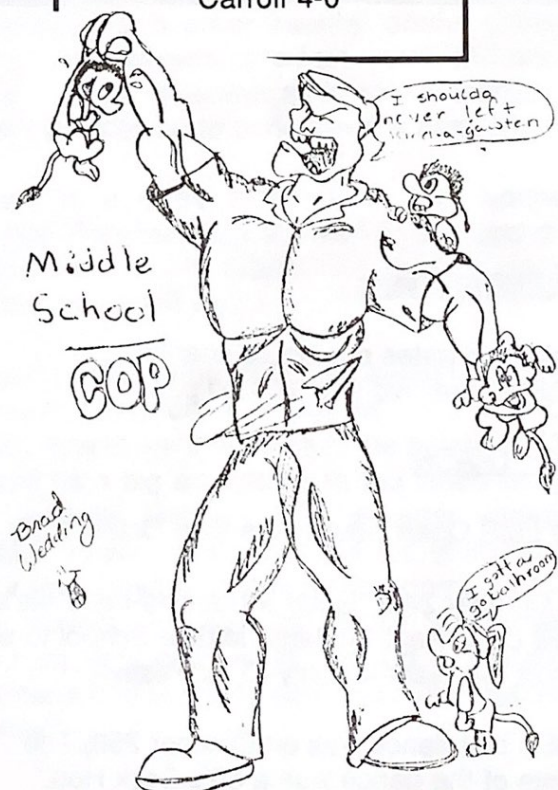 Carroll 4-0
I shoulda
never left
Middle
School
COP
Brad
Wedding
I gotta
go bathroom